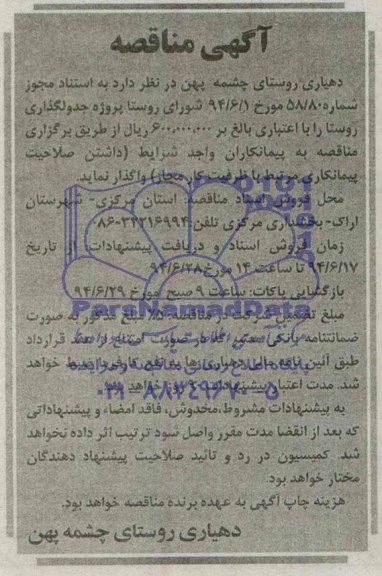 آگهی مناقصه
دهیاری روستای چشمه پهن در نظر دارد به استناد مجوز
شماره ۵۸/۸۰ مورخ ۹۴/۶/۱ شورای روستا پروژه جدولگذاری
روستا را با اعتباری بالغ بر ۶۰۰،۰۰۰،۰۰۰ ریال از طریق برگزاری
مناقصه به پیمانکاران واجد شرایط (داشتن صلاحیت
پیمانکاری مرتبط با ظرفیت کار مجاز) واگذار نماید.
محل فروش اسناد مناقصه: استان مرکزی- شهرستان
اراک- بخشداری مرکزی تلفن: ۳۲۲۱۶۹۹۴-۰۸۶
زمان فروش اسناد و دریافت پیشنهادات: از تاریخ
۹۴/۶/۱۷ تا ساعت ۱۴ مورخ ۹۴/۶/۲۸
بازگشایی پاکات: ساعت ۹ صبح مورخ ۹۴/۶/۲۹
ParsNamadData
مبلغ تضمین شرکت در مناقصه: ۵٪ مبلغ مذکور به صورت
ضمانتنامه بانکی معتبر که در صورت امتناع از عقد قرارداد
طبق آئین نامه مالی دهیاری ها به نفع کارفرما ضبط خواهد
شد. مدت اعتبار پیشنهادات ۹۰ روز خواهد بود.
۰۲۱-۸۸۳۴۹۶۷۰-۵
به پیشنهادات مشروط،مخدوش، فاقد امضاء و پیشنهاداتی
که بعد از انقضا مدت مقرر واصل شود ترتیب اثر داده نخواهد
شد. کمیسیون در رد و تائید صلاحیت پیشنهاد دهندگان
مختار خواهد بود.
هزینه چاپ آگهی به عهده برنده مناقصه خواهد بود.
دهیاری روستای چشمه پهن